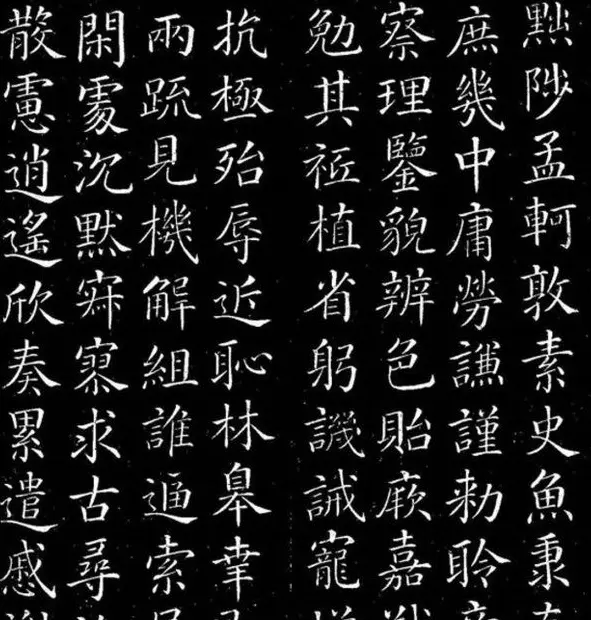 黜陟孟軻敦素史魚秉
庶幾中庸勞謙謹勅聆
察理鑒貌辨色貽厥嘉
勉其祗植省躬譏誡寵
抗極殆辱近恥林皋幸
兩疏見機解組誰逼索
閑處沉默寂寥求古尋
散慮逍遙欣奏累遣慼